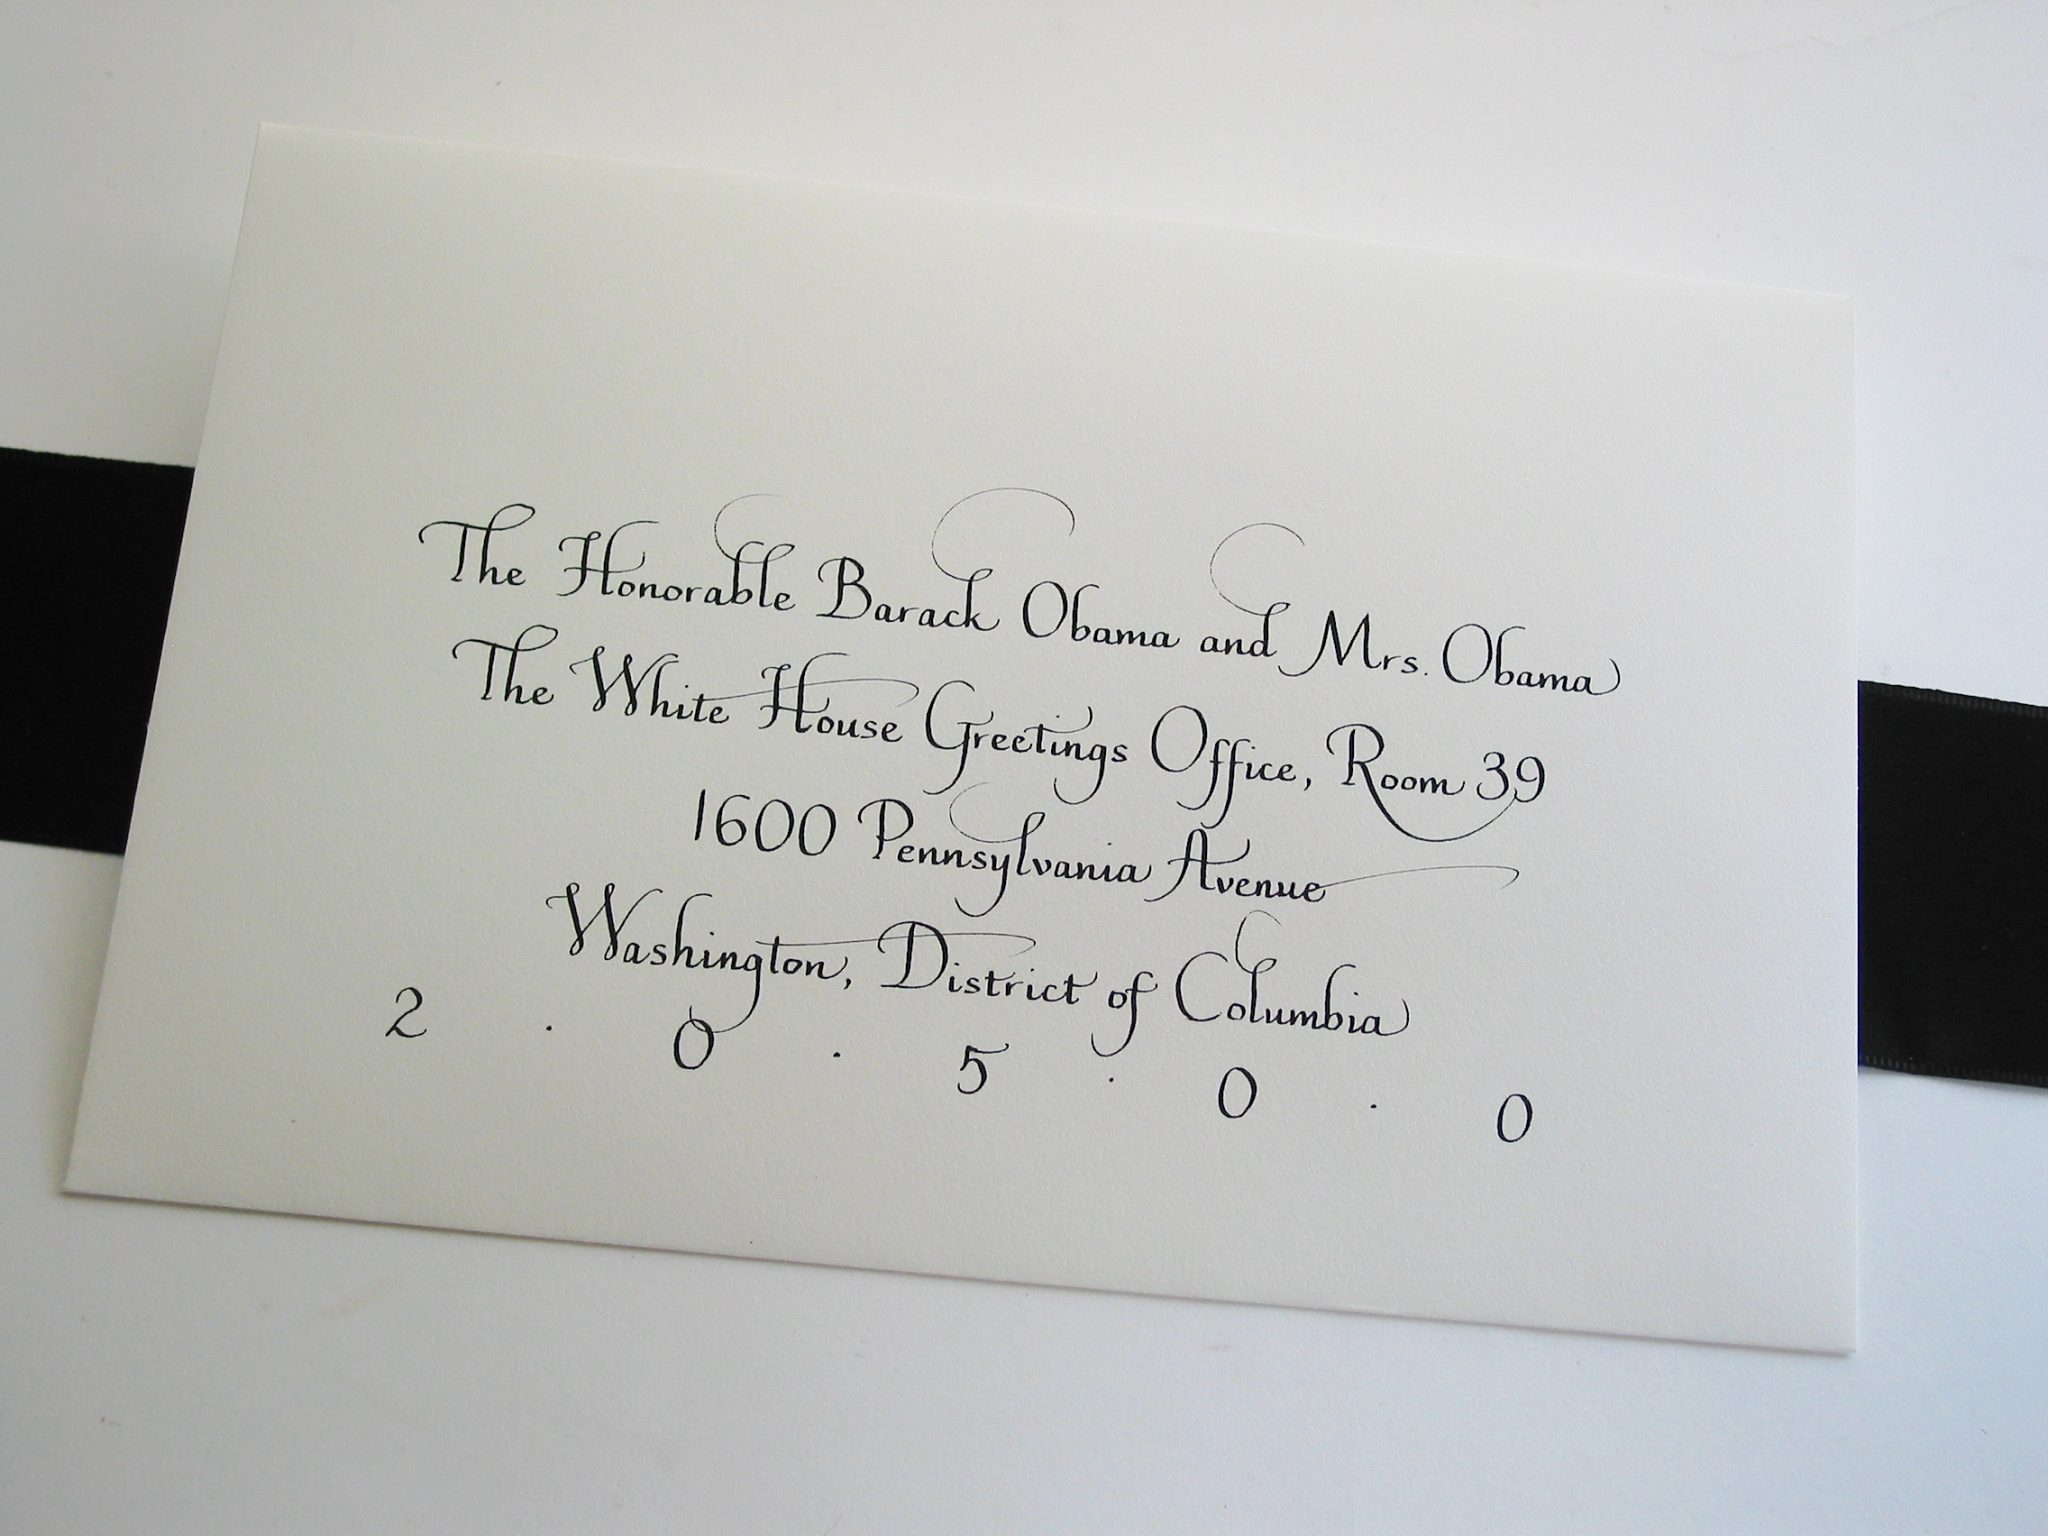 The Honorable Barack Obama and Mrs. Obama
The White House Greetings Office, Room 39
1600 Pennsylvania Avenue
Washington, District of Columbia
2 . 0 . 5 . 0 . 0